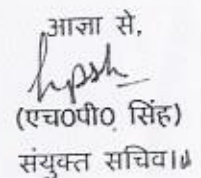 आज्ञा से,
(एच0पी0 सिंह)
संयुक्त सचिव।